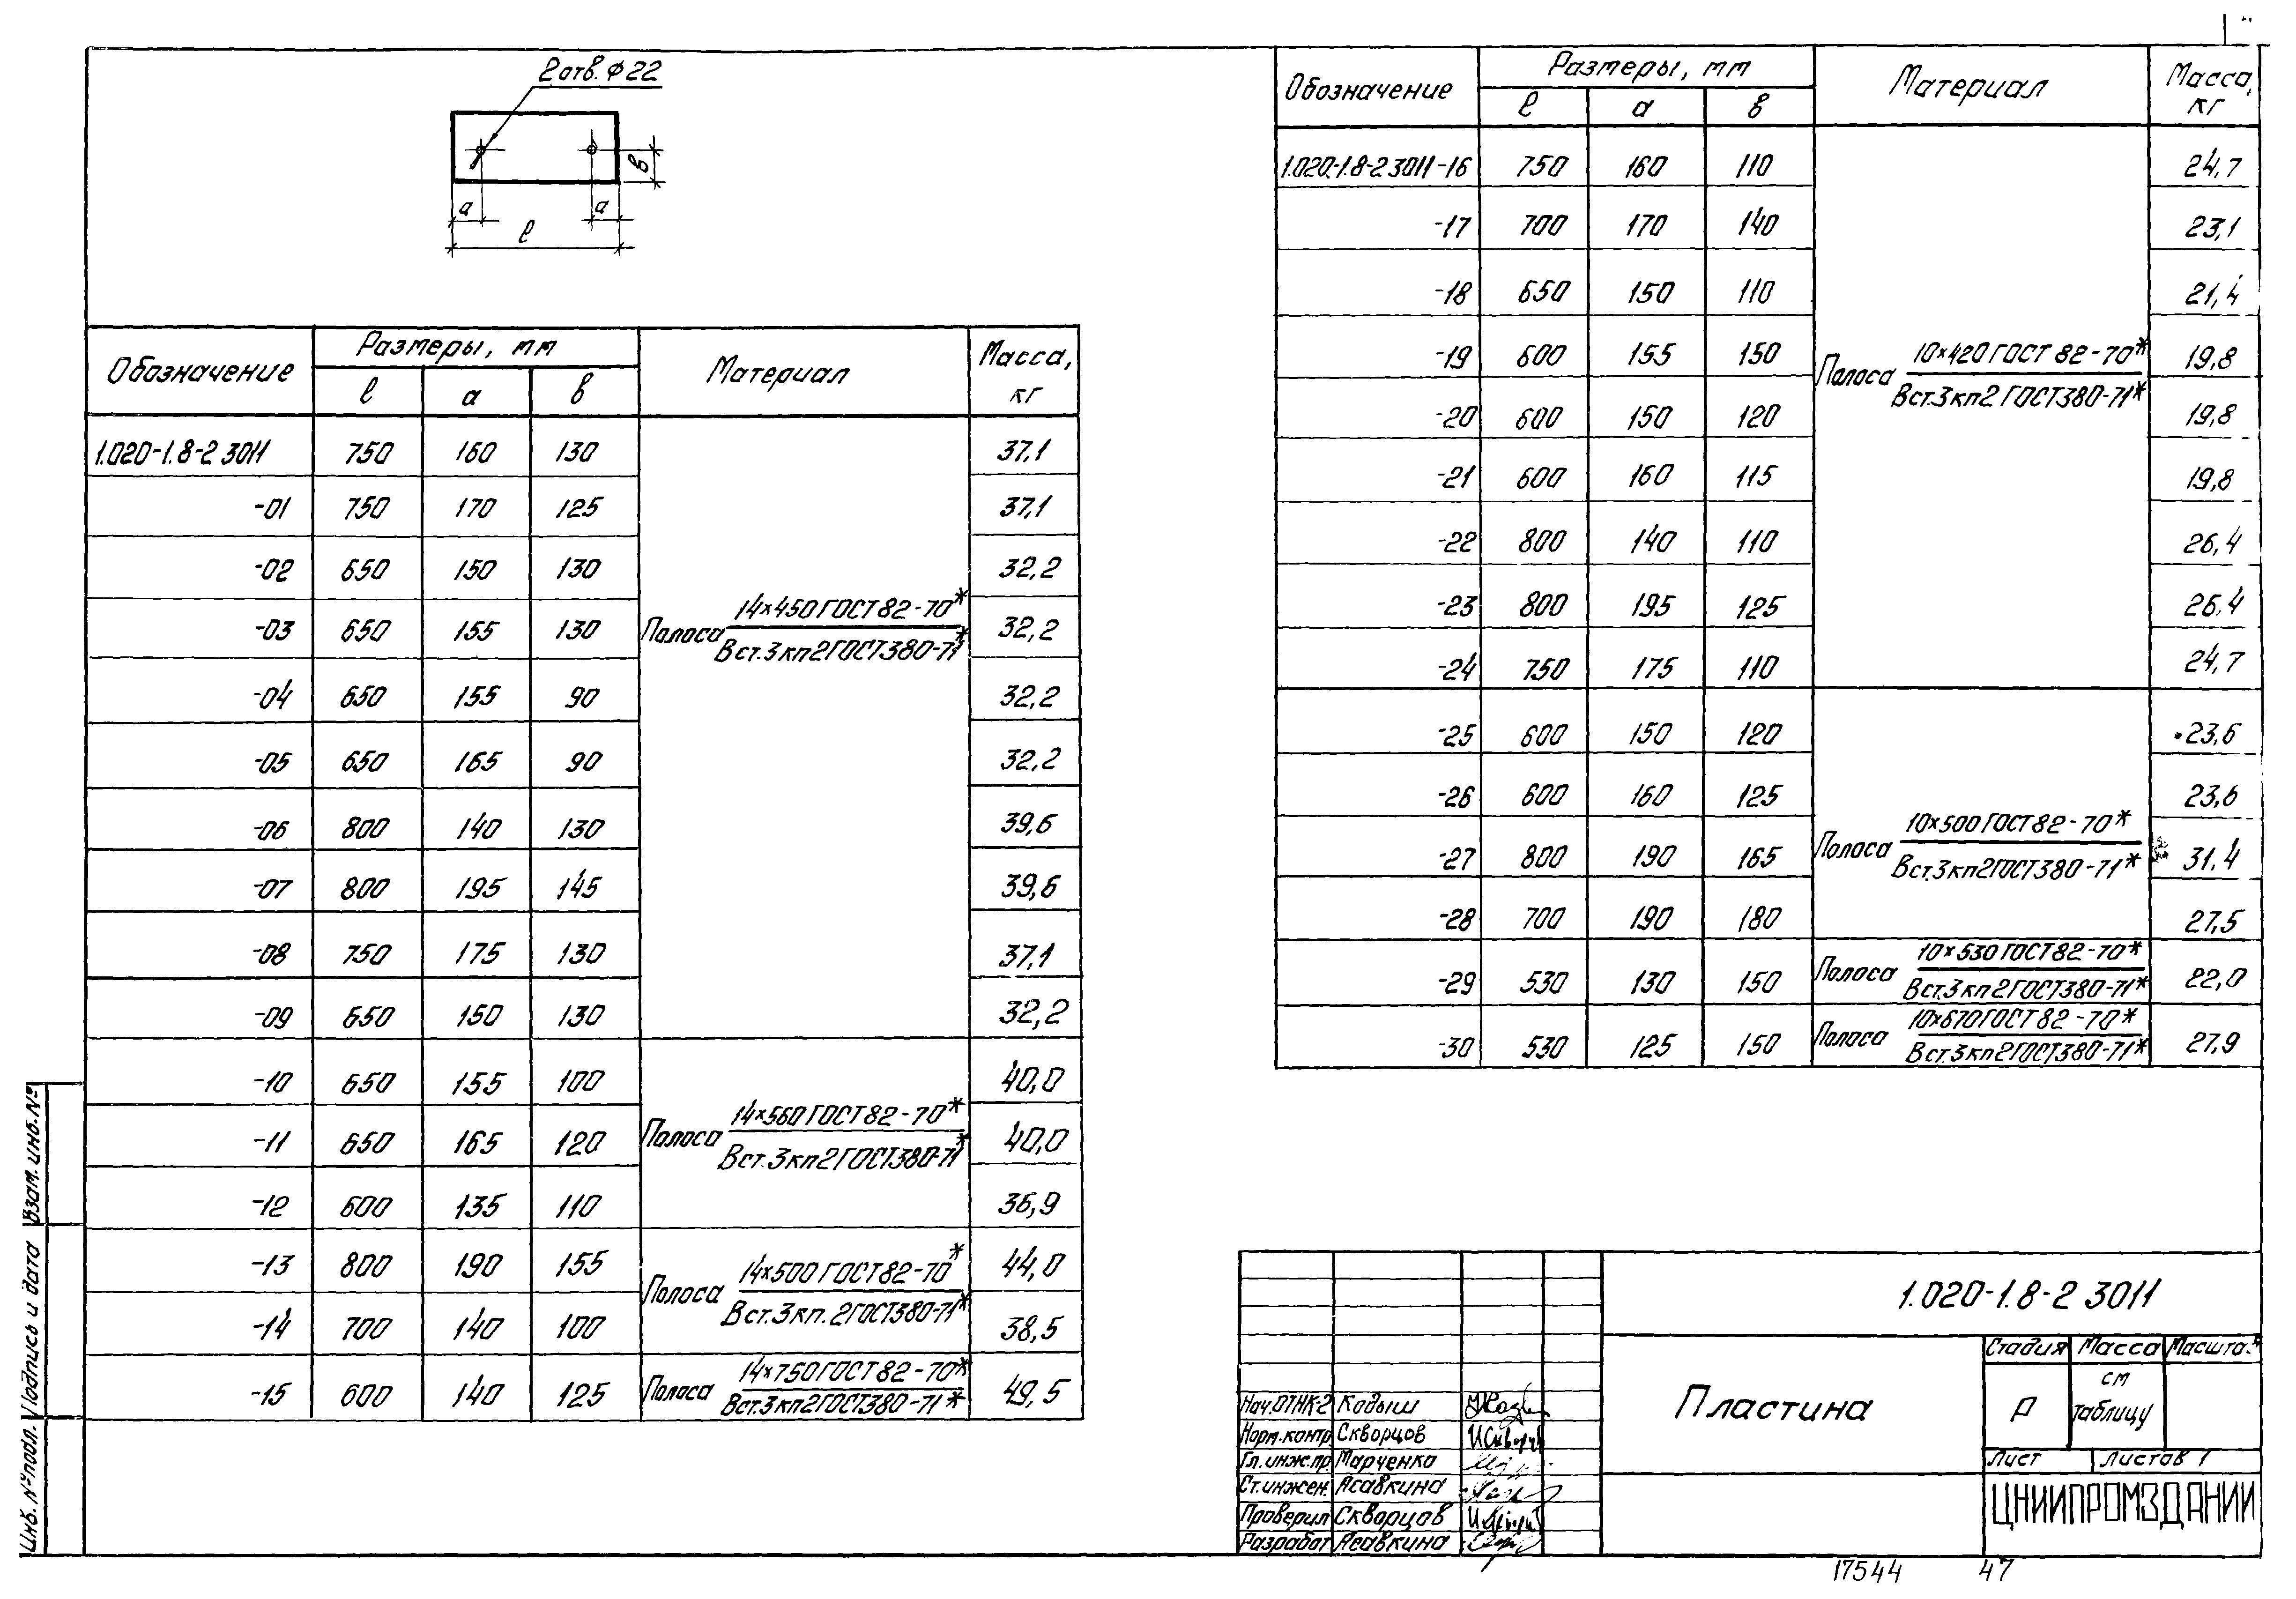 2 отв. Ф22
в
а
а
ℓ
Обозначение Размеры, мм Материал Масса, кг
ℓ а в
1.020-1.8-2 3011 750 160 130 37,1
-01 750 170 125 37,1
-02 650 150 130 32,2
-03 650 155 130 Полоса 14×450 ГОСТ 82-70* / Вст.3кп2 ГОСТ 380-71* 32,2
-04 650 155 90 32,2
-05 650 165 90 32,2
-06 800 140 130 39,6
-07 800 195 145 39,6
-08 750 175 130 37,1
-09 650 150 130 32,2
-10 650 155 100 40,0
-11 650 165 120 Полоса 14×560 ГОСТ 82-70* / Вст.3кп2 ГОСТ 380-71* 40,0
-12 600 135 110 36,9
-13 800 190 155 Полоса 14×500 ГОСТ 82-70* / Вст.3кп.2 ГОСТ 380-71* 44,0
-14 700 140 100 38,5
-15 600 140 125 Полоса 14×750 ГОСТ 82-70* / Вст.3кп2 ГОСТ 380-71* 49,5
Обозначение Размеры, мм Материал Масса, кг
ℓ а в
1.020-1.8-2 3011-16 750 160 110 24,7
-17 700 170 140 23,1
-18 650 150 110 21,4
-19 600 155 150 Полоса 10×420 ГОСТ 82-70* / Вст.3кп2 ГОСТ 380-71* 19,8
-20 600 150 120 19,8
-21 600 160 115 19,8
-22 800 140 110 26,4
-23 800 195 125 26,4
-24 750 175 110 24,7
-25 600 150 120 23,6
-26 600 160 125 23,6
-27 800 190 165 Полоса 10×500 ГОСТ 82-70* / Вст.3кп2 ГОСТ 380-71* 31,4
-28 700 190 180 27,5
-29 530 130 150 Полоса 10×530 ГОСТ 82-70* / Вст.3кп2 ГОСТ 380-71* 22,0
-30 530 125 150 Полоса 10×670 ГОСТ 82-70* / Вст.3кп2 ГОСТ 380-71* 27,9
1.020-1.8-2 3011
Пластина
Стадия Масса
Р см таблицу
Лист Листов 1
ЦНИИПРОМЗДАНИЙ
Нач.ОТНК-2 Кодыш
Норм.контр Скворцов
Гл.инж.пр. Марченко
Ст.инжен. Асавкина
Проверил Скворцов
Разработ Асавкина
Инв. № подл. Подпись и дата Взам. инв. №
17544 47